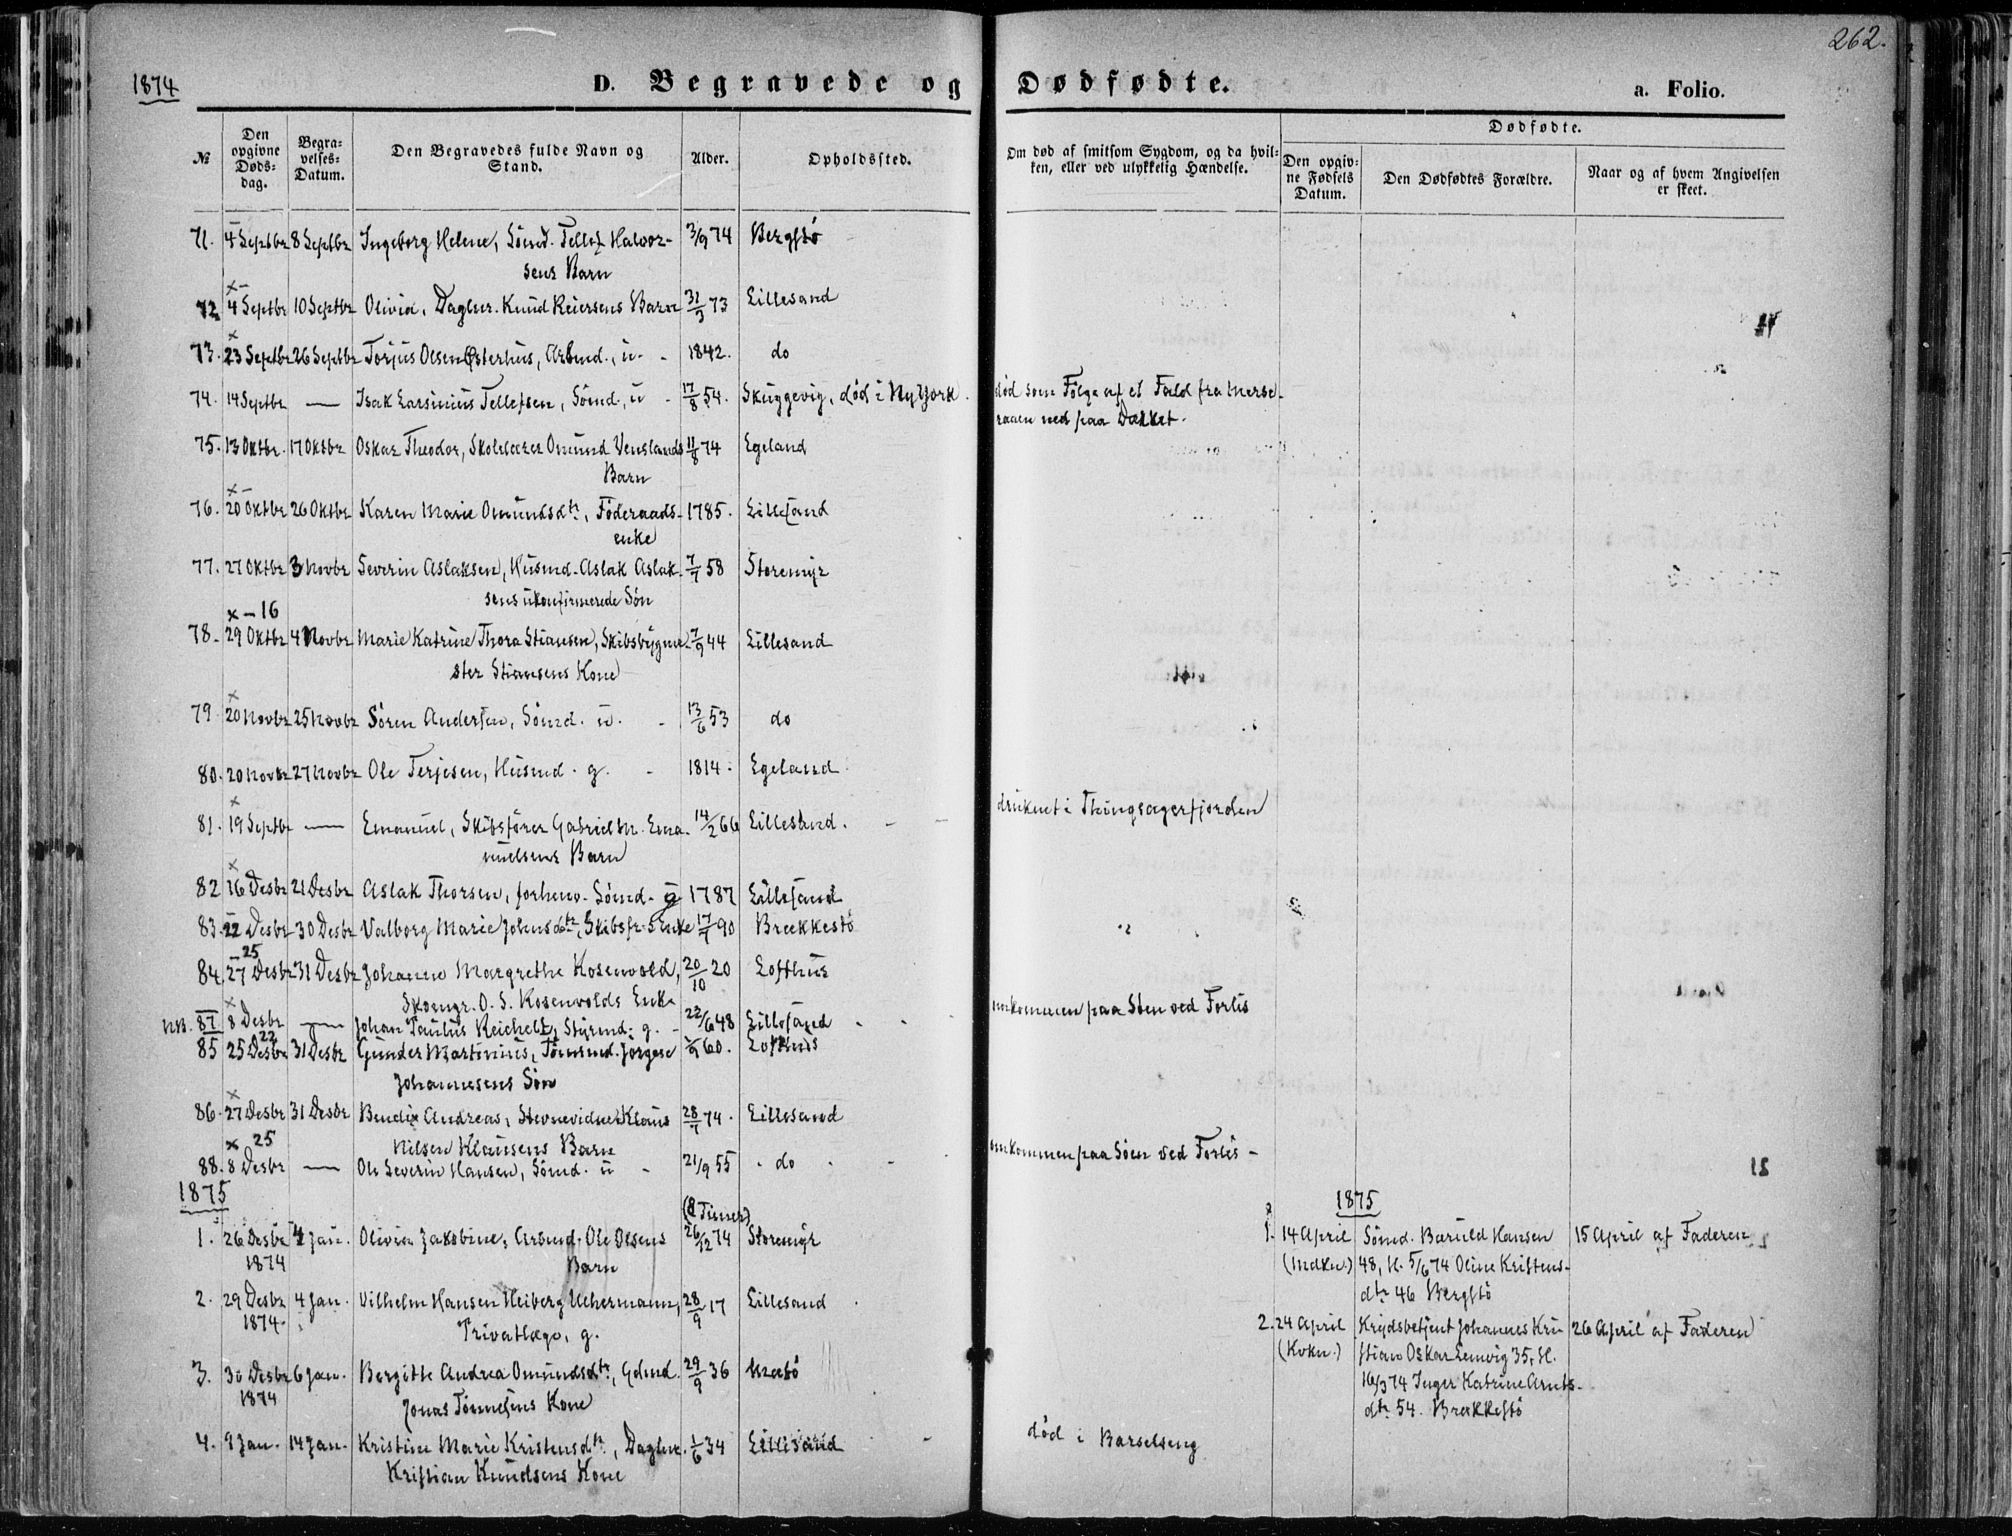 262.
1874
D. Begravede og Dødfødte.
a. Folio.
№
Den opgivne Døds-dag.
Begra-velses-Datum.
Den Begravedes fulde Navn og Stand.
Alder.
Opholdssted.
Om død af smitsom Sygdom, og da hvil-ken, eller ved ulykkelig Hændelse.
Dødfødte.
Den opgiv-ne Fødsels Datum.
Den Dødfødtes Forældre.
Naar og af hvem Angivelsen er skeet.
71. 4 Septbr 8 Septbr Ingeborg Helene, Sømd. Tellef Halvor- 3/9 74 Bergstø
sens Barn
72. 4 Septbr 10 Septbr Olivia, Daglnr. Knud Reiersens Barn 31/3 73 Lillesand
73. 23 Septbr 26 Septbr Torjus Olsen Østerhus, Arbmd., u. - 1842. do
74. 14 Septbr — Isak Larsinius Tellefsen, Sømd., u - 17/8 54. Skuggevig, død i NyYork. død som Følge af et Fald fra Merse-
raaen ned paa Dækket.
75. 13 Oktbr. 17 Oktbr Oskar Theodor, Skolelærer Omund Venslands 11/8 74 Egeland
Barn
76. 20 Oktbr 26 Oktbr Karen Marie Omundsdtr, Føderaads- 1785. Lillesand
enke
77. 27 Oktbr 3 Novbr Severin Aslaksen, Husmd. Aslak Aslak- 7/7 58 Storemyr
sens ukonfirmerede Søn
x - 16
78. 29 Oktbr 4 Novbr Marie Katrine Thora Stiansen, Skibsbygme- 7/9 44 Lillesand
ster Stiansens Kone
79. 20 Novbr 25 Novbr Søren Andersen, Sømd. u. - 13/6 53 do
80. 20 Novbr 27 Novbr Ole Terjesen, Husmd. g. - 1814. Egeland
81. 19 Septbr — Emanuel, Skibsfører Gabriel M. Ema- 14/2 66 Lillesand. - - druknet i Thingsagerfjorden
nuelsens Barn
82 16 Desbr 21 Desbr Aslak Thorsen, forhenv. Sømd. g 1787 Lillesand
83. 22 Desbr 30 Desbr Valborg Marie Johnsdtr, Skibsfr.s Enke 17/7 90 Brækkestø
25
84. 27 Desbr 31 Desbr Johanne Margrethe Rosenvold, 20/10 20 Lofthus
O. S. Rosenvolds Enke
NB. 87 8 Desbr — Johan Paulus Reichelt, Styrmd. g. - 22/6 48 Lillesand - - omkommen paa Søen ved Forlis
22
85 25 Desbr 31 Desbr Gunder Martinius, Tømrmd. Jørgen 60. Lofthus
Johannesens Søn
86. 27 Desbr 31 Desbr Bendix Andreas, Stevnevidne Klaus 28/7 74. Lillesand
Nilsen Klausens Barn
x 25
88. 8 Desbr — Ole Severin Hansen, Sømd. u - 21/9 55 - do - - omkommen paa Søen ved Forlis -
1875
1. 26 Desbr 4 Jan. Olivia Jakobine, Arbmd. Ole Olsens (8 Timer) 26/12 74 Storemyr
1874 Barn
2. 29 Desbr 4 Jan. Vilhelm Hansen Heiberg Uchermann, 28/9 17 Lillesand
1874. Privatlæge, g.
3. 30 Desbr 6 Jan. Bergitte Andrea Omundsdtr, Gdmd. 29/9 36 Urestø
1874 Jonas Tønnesens Kone
4. 9 Jan. 14 Jan. Kristine Marie Kristensdtr, Daglnr. 1/6 34 Lillesand - død i Barselseng
Kristian Knudsens Kone
1875
1. 14 April Sømd. Baruld Hansen 15 April af Faderen
(Mdkn.) 48, H. 5/6 74 Oline Kristens-
dtr 46 Bergstø
2. 24 April Krydsbetjent Johannes Kri- 26 April af Faderen
(Kvkn.) stian Oskar Lemvig 35, H.
74 Inger Katrine Arnts-
dtr 54. Brækkestø